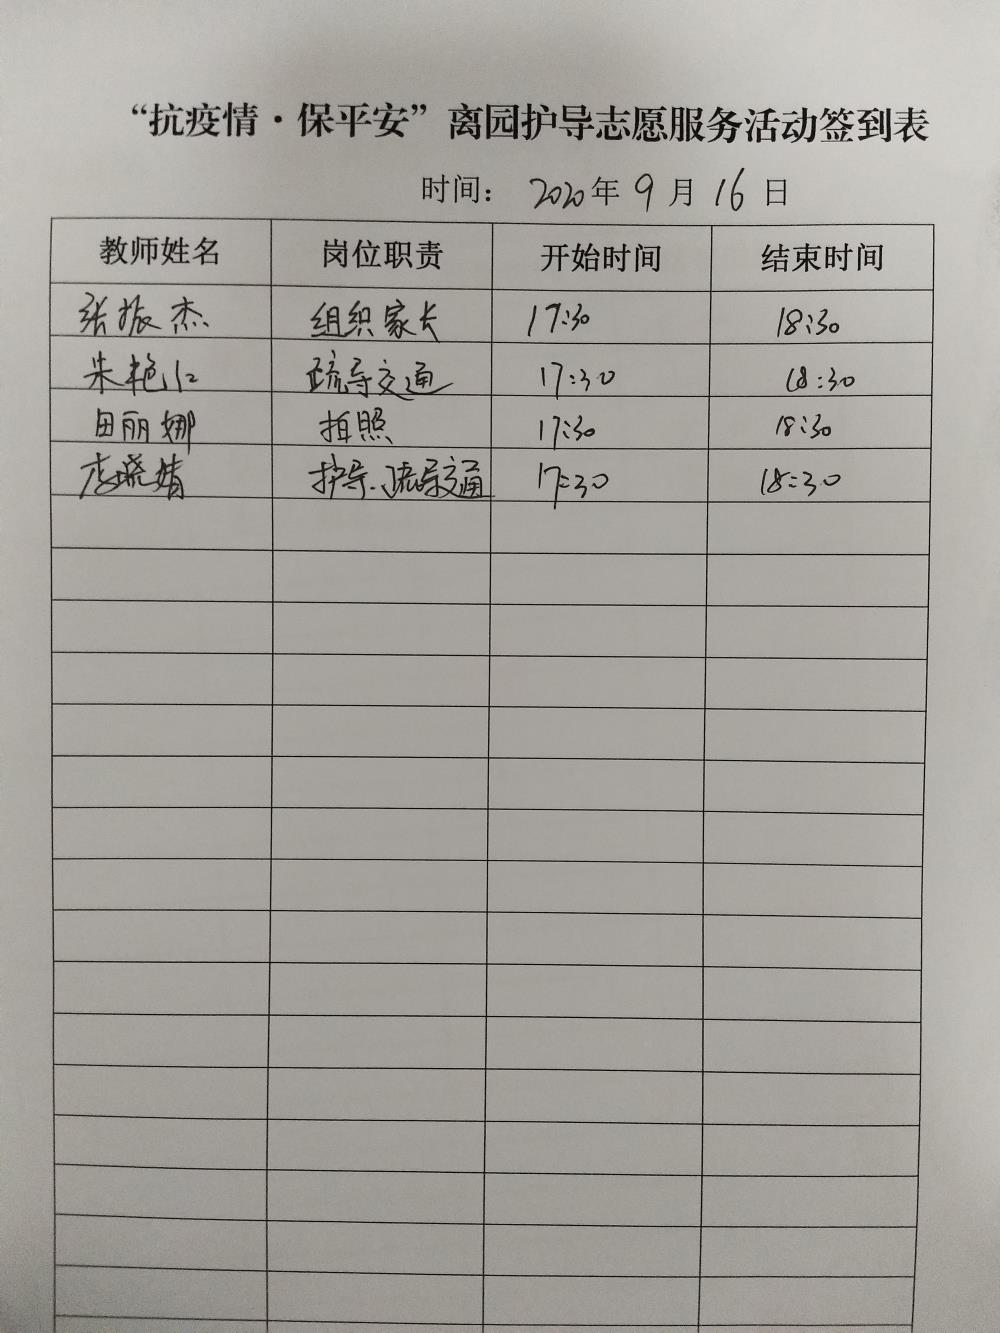 “抗疫情·保平安”离园护导志愿服务活动签到表
时间： 2020年 9 月 16 日
教师姓名 岗位职责 开始时间 结束时间
张振杰 组织家长 17:30 18:30
朱艳红 疏导交通 17:30 18:30
田丽娜 拍照 17:30 18:30
李晓婧 护导、疏导交通 17:30 18:30